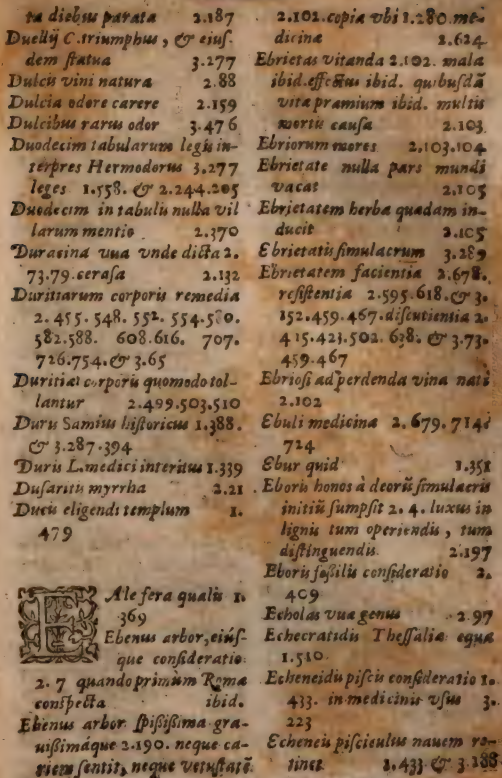 ta diebus parata 2.187
Duellij C. triumphus, & eius-
dem statua 3.277
Dulcis vini natura 2.88
Dulcia odore carere 2.159
Dulcibus rarus odor 3.476
Duodecim tabularum legis in-
terpres Hermodorus 3.277
leges 1.558. & 2.244.205
Duodecim in tabulis nulla vil
larum mentio 2.370
Duracina vua vnde dicta 2.
73.79. cerasa 2.132
Duritiarum corporis remedia
2.455.548.552.554.580.
582.588. 608.616. 707.
726.754. & 3.65
Duritiæ corporis quomodo tol-
lantur 2.499.503.510
Duris Samius historicus 1.388.
& 3.287.394
Duris L. medici interitus 1.339
Dusaritis myrrha 2.21
Ducis eligendi templum 1.
479
EAle fera qualis 1.
369
Ebenus arbor, eiús-
que consideratio
2.7 quando primùm Romæ
conspecta ibid.
Ebenus arbor spißißima gra-
uißimáque 2.190. neque ca-
riem sentit, neque vetustatē
2.102. copia vbi 1.280. me-
dicina 2.624
Ebrietas vitanda 2.102. mala
ibid. effectus ibid. quibusdā
vita præmium ibid. multis
mortis causa 2.103
Ebriorum mores 2.103.104
Ebrietate nulla pars mundi
vacat 2.105
Ebrietatem herba quædam in-
ducit 2.105
Ebrietatis simulacrum 3.289
Ebrietatem facientia 2.678.
resistentia 2.595.618. & 3.
152.459.467. discutientia 2.
415.423.502.638. & 3.73.
459.467
Ebriosi ad perdenda vina nati
2.102
Ebuli medicina 2.679.714.
724
Ebur quid 1.351
Eboris honos à deorū simulacris
initiū sumpsit 2.4. luxus in
lignis tum operiendis, tum
distinguendis 2.197
Eboris fossilis consideratio 2.
409
Echolas vua genus 2.97
Echecratidis Thessalia equa
1.510
Echeneidis piscis consideratio 1.
433. in medicinis vsus 3.
223
Echeneis pisciculus nauem re-
tinet 1.433 & 3.188